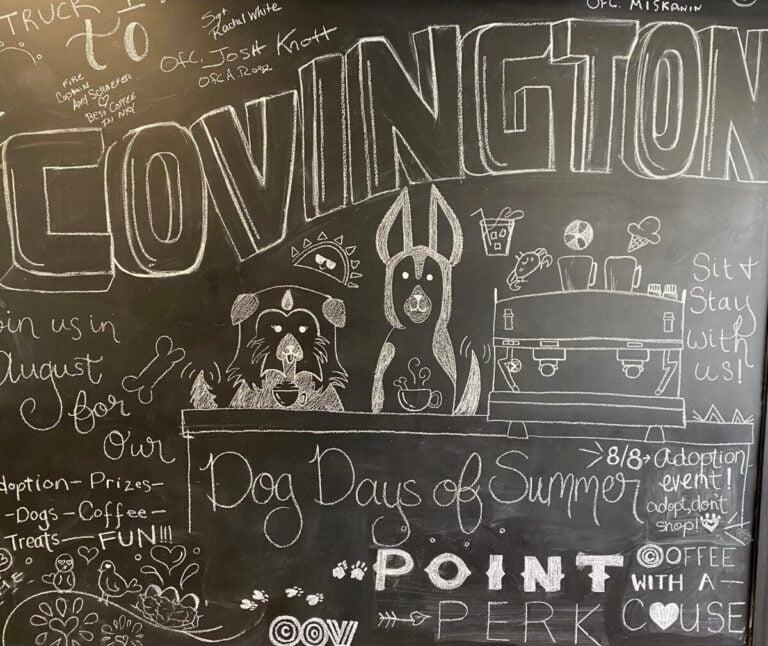 TRUCK
to
Sgt
Rachel White
Ofc. Josh Knott
OFC. MISKANIN
FIRE
Captain
Amy SCHAEFER
Best Coffee
IN NKY
COVINGTON
oin us in
August
for
our
doption - Prizes -
- Dogs - Coffee -
Treats - FUN!!!
Sit &
Stay
with
us!
Dog Days of Summer
8/8 → Adoption
event!
adopt, don't
shop!
POINT
PERK
COFFEE
WITH A -
CAUSE
COV